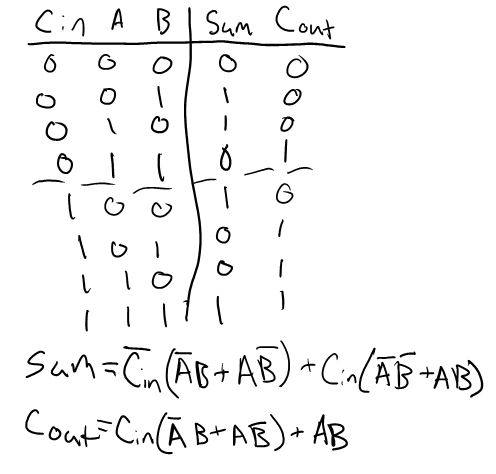 Cin A B Sum Cout
0 0 0 0 0
0 0 1 1 0
0 1 0 1 0
0 1 1 0 1
1 0 0 1 0
1 0 1 0 1
1 1 0 0 1
1 1 1 1 1
Sum = C̅in(A̅B + AB̅) + Cin(A̅B̅ + AB)
Cout = Cin(A̅B + AB̅) + AB